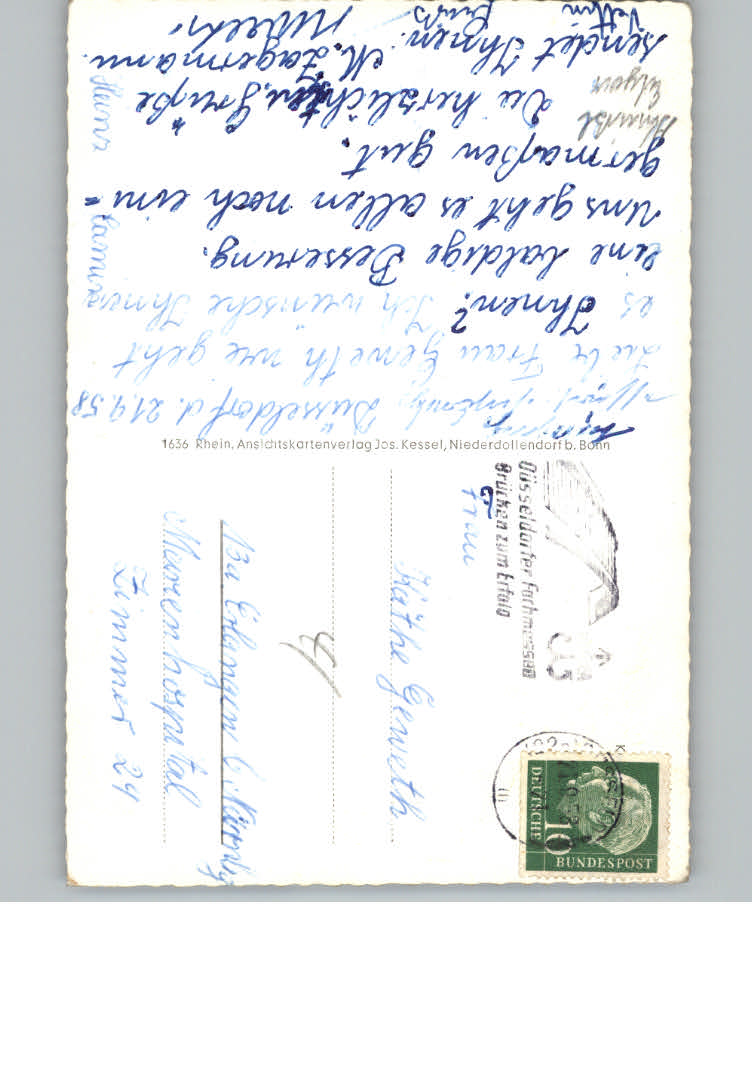 Düsseldorf d. 21.9.58
Liebe Frau Gerneth wie geht
es Ihnen? Ich wünsche Ihnen
eine baldige Besserung.
Uns geht es allen noch eini=
germaßen gut.
Die herzlichsten Grüße
sendet Ihnen. M. Zagermann.
Heinz
1636 Rhein. Ansichtskartenverlag Jos. Kessel, Niederdollendorf b. Bonn
Düsseldorfer Fachmessen
Brücken zum Erfolg
DEUTSCHE
BUNDESPOST
10
Frau
Käthe Gerneth
13a Erlangen b. Nürnbg
Marienhospital
Zimmer 24